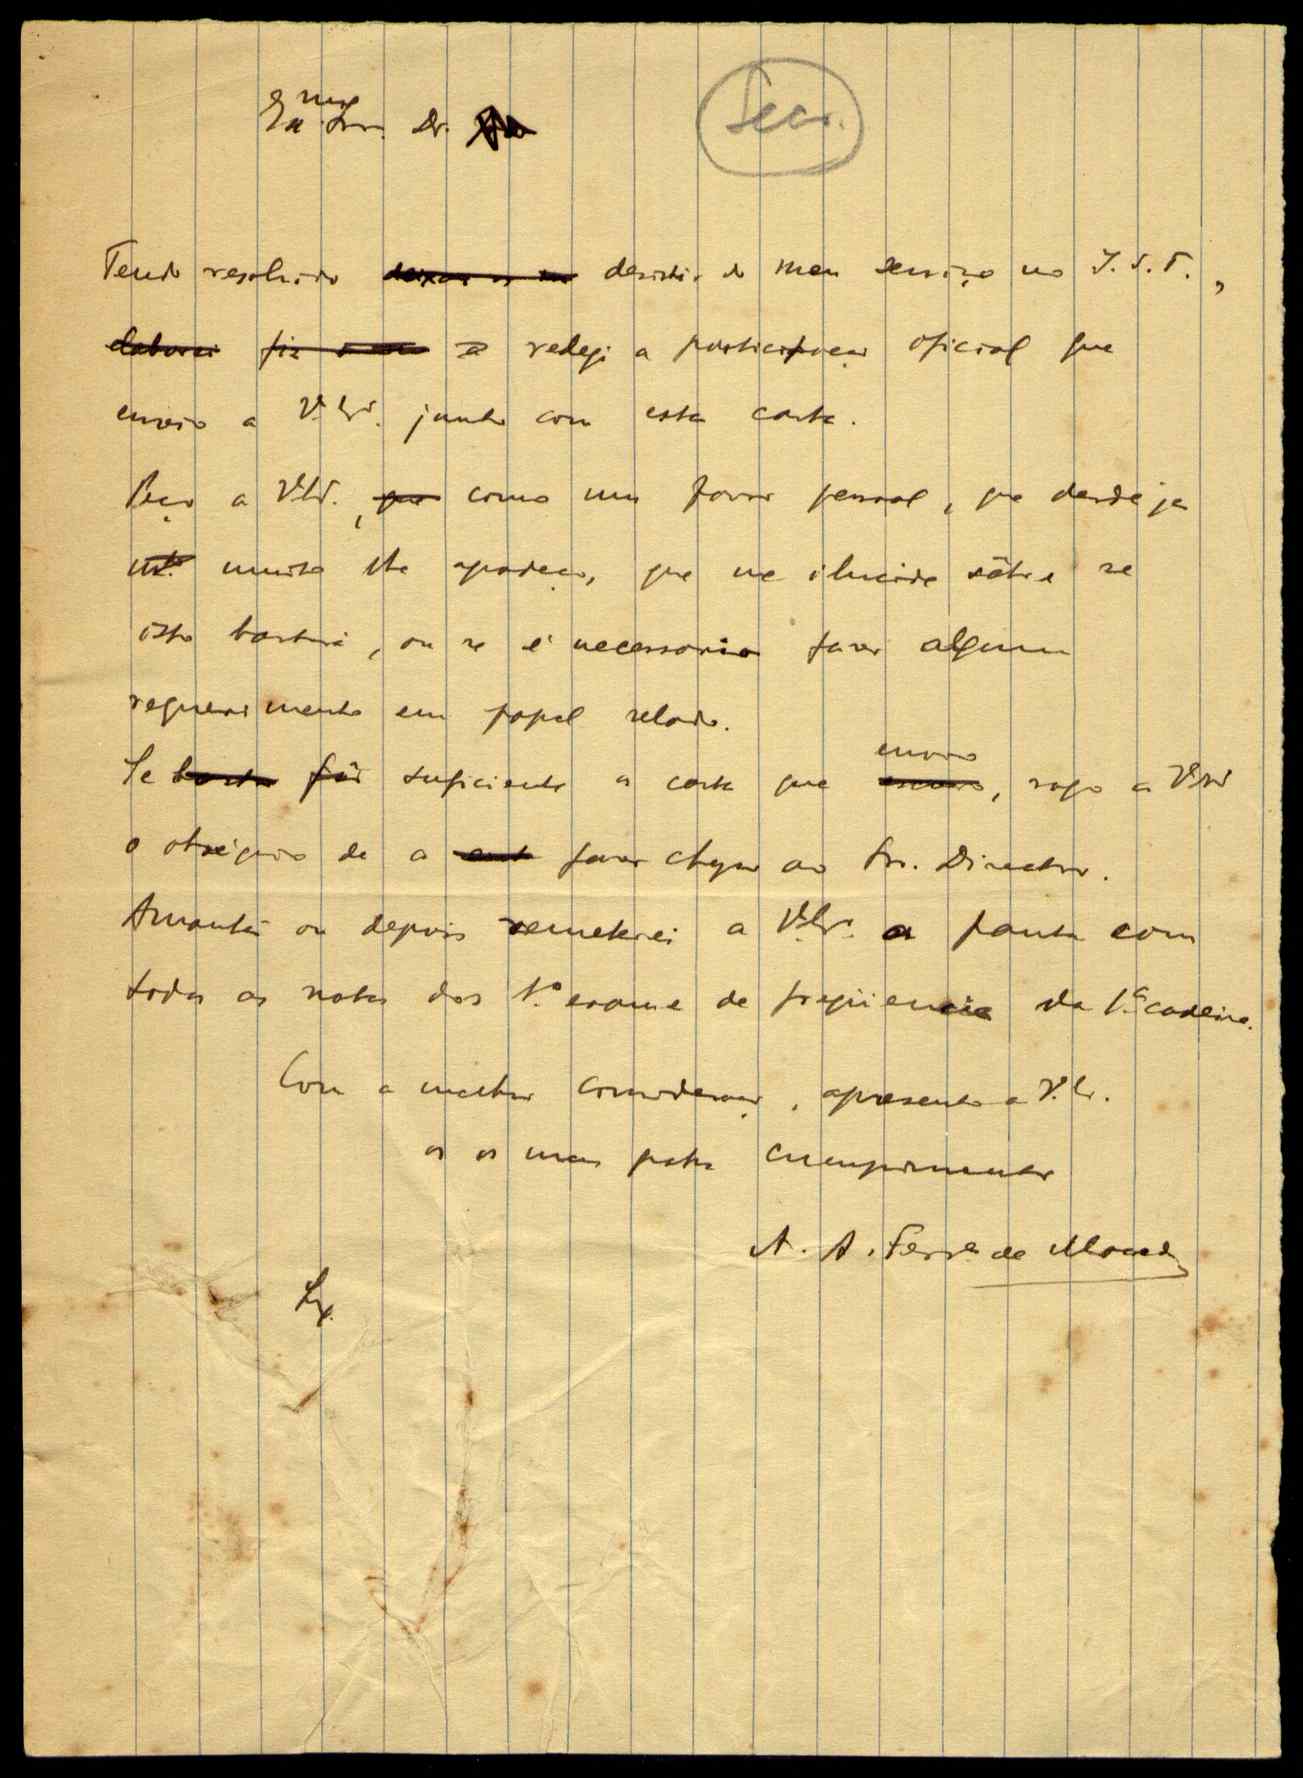 Exmo Snr. Dr.
Secr.
Tendo resolvido deixar desistir do meu serviço no I.S.T.,
elaborei fiz redegi a participação oficial que
envio a V. Exª. junto com esta carta.
Peço a V. Exª., que como um favor pessoal, que desde já
muito lhe agradeço, que me elucide sôbre se
isto bastará, ou se é necessario fazer algum
requerimento em papel selado.
envio
Se basta fôr suficiente a carta que, rogo a V. Exª
o obséquio de a fazer chegar ao Snr. Director.
Amanhã ou depois remeterei a V. Exª. a pauta com
todas as notas dos 1.º exame de freqüencia da 1.ª cadeira.
Com a melhor consideração, apresento a V. Ex.
os os meus cumprimentos
A. A. Ferrª de Macedo
Lx.